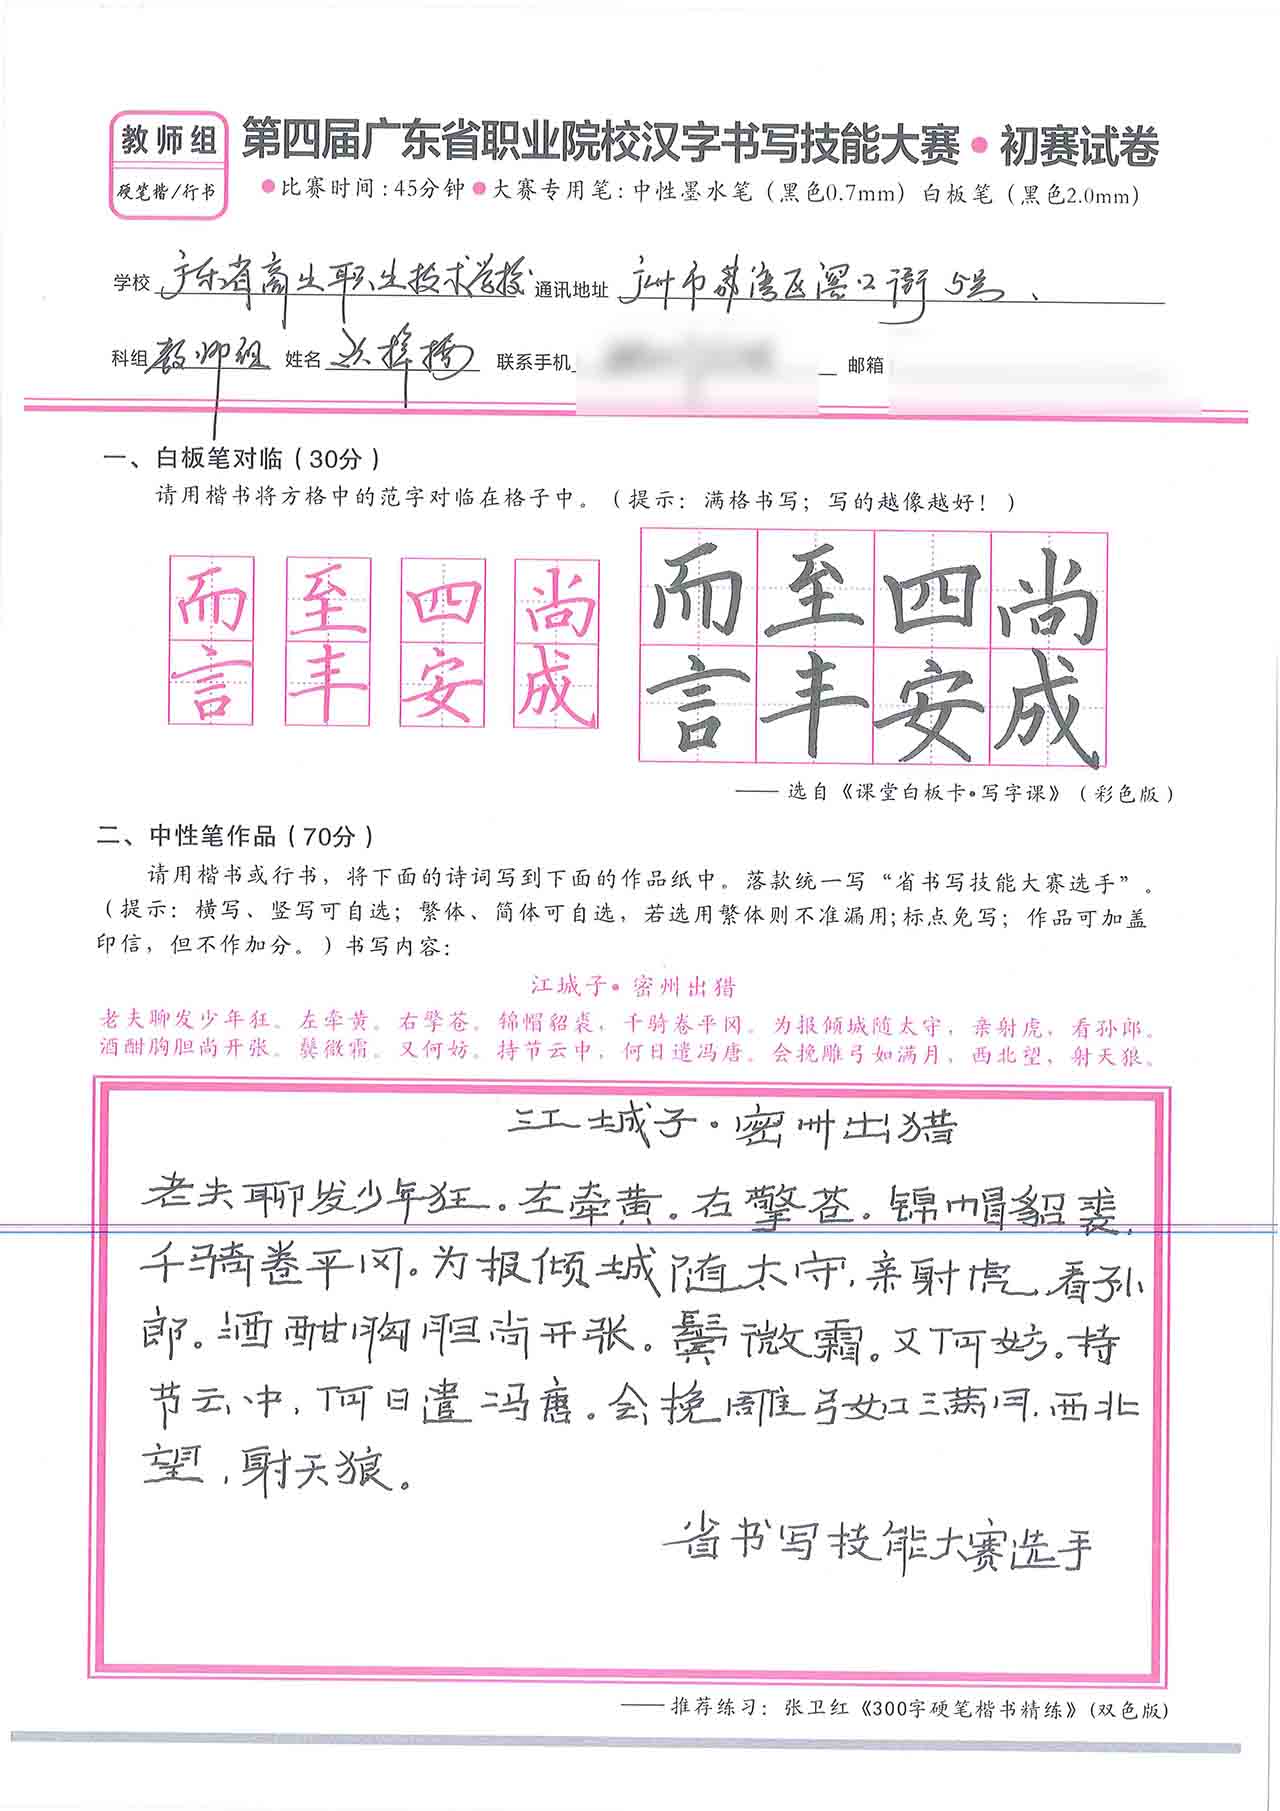 教师组
硬笔楷/行书
第四届广东省职业院校汉字书写技能大赛•初赛试卷
●比赛时间:45分钟●大赛专用笔:中性墨水笔(黑色0.7mm)白板笔(黑色2.0mm)
学校 广东省商业职业技术学校 通讯地址 广州市荔湾区滘口街5号
科组 教师组 姓名 联系手机 邮箱
一、白板笔对临(30分)
请用楷书将方格中的范字对临在格子中。(提示: 满格书写; 写的越像越好!)
而 至 四 尚 而 至 四 尚
言 丰 安 成 言 丰 安 成
——选自《课堂白板卡•写字课》(彩色版)
二、中性笔作品(70分)
请用楷书或行书，将下面的诗词写到下面的作品纸中。落款统一写“省书写技能大赛选手”。
(提示: 横写、竖写可自选; 繁体、简体可自选, 若选用繁体则不准漏用;标点免写; 作品可加盖
印信, 但不作加分。)书写内容:
江城子•密州出猎
老夫聊发少年狂。左牵黄。右擎苍。锦帽貂裘, 千骑卷平冈。为报倾城随太守, 亲射虎, 看孙郎。
酒酣胸胆尚开张。鬓微霜。又何妨。持节云中, 何日遣冯唐。会挽雕弓如满月, 西北望, 射天狼。
江城子·密州出猎
老夫聊发少年狂。左牵黄。右擎苍。锦帽貂裘,
千骑卷平冈。为报倾城随太守,亲射虎,看孙
郎。酒酣胸胆尚开张。鬓微霜。又何妨。持
节云中,何日遣冯唐。会挽雕弓如满月,西北
望,射天狼。
省书写技能大赛选手
——推荐练习: 张卫红《300字硬笔楷书精练》(双色版)